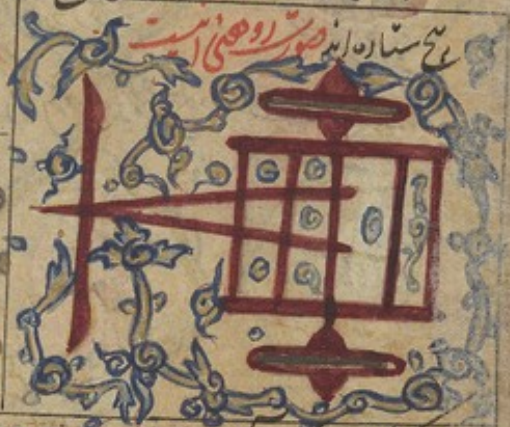 هیچ ستاره اند صورت روهنی اینست